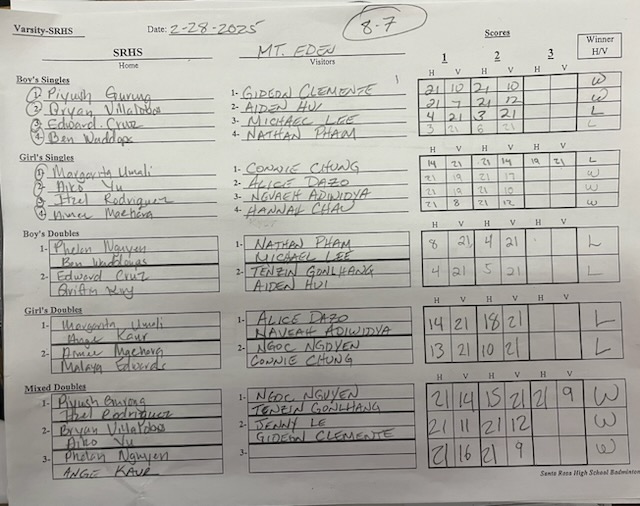 Varsity-SRHS Date: 2-28-2025 8-7
SRHS MT. EDEN Scores Winner
Home Visitors 1 2 3 H/V
H V H V H V
Boy's Singles
1 Piyush Gurung 1- GIDEON CLEMENTE 21 10 21 10 W
2 Bryan Villalobos 2- AIDEN HUI 21 7 21 12 W
3 Edward Cruz 3- MICHAEL LEE 4 21 3 21 L
4 Ben Waddops 4- NATHAN PHAM 3 21 6 21 L
Girl's Singles H V H V H V
1 Margarita Umali 1- CONNIE CHUNG 14 21 21 14 19 21 L
2 Aiko Yu 2- ALICE DAZO 21 19 21 17 W
3 Itzel Rodriguez 3- NEVAEH ADIWIDYA 21 19 21 10 W
4 4- HANNAH CHAU 21 8 21 12 W
Boy's Doubles H V H V H V
1- Phelan Nguyen 1- NATHAN PHAM 8 21 4 21 L
Ben MICHAEL LEE
2- Edward Cruz 2- TENZIN GONLHANG 4 21 5 21 L
AIDEN HUI
Girl's Doubles H V H V H V
1- Margarita Umali 1- ALICE DAZO 14 21 18 21 L
Ange Kaur NAVEAH ADIWIDYA
2- 2- NGOC NGUYEN 13 21 10 21 L
Malaya Edwards CONNIE CHUNG
Mixed Doubles H V H V H V
1- Piyush Gurung 1- NGOC NGUYEN 21 14 15 21 21 9 W
Itzel Rodriguez TENZIN GONLHANG
2- Bryan Villalobos 2- JENNY LE 21 11 21 12 W
Aiko Yu GIDEON CLEMENTE
3- Phelan Nguyen 3- 21 16 21 9 W
ANGE KAUR
Santa Rosa High School Badminton